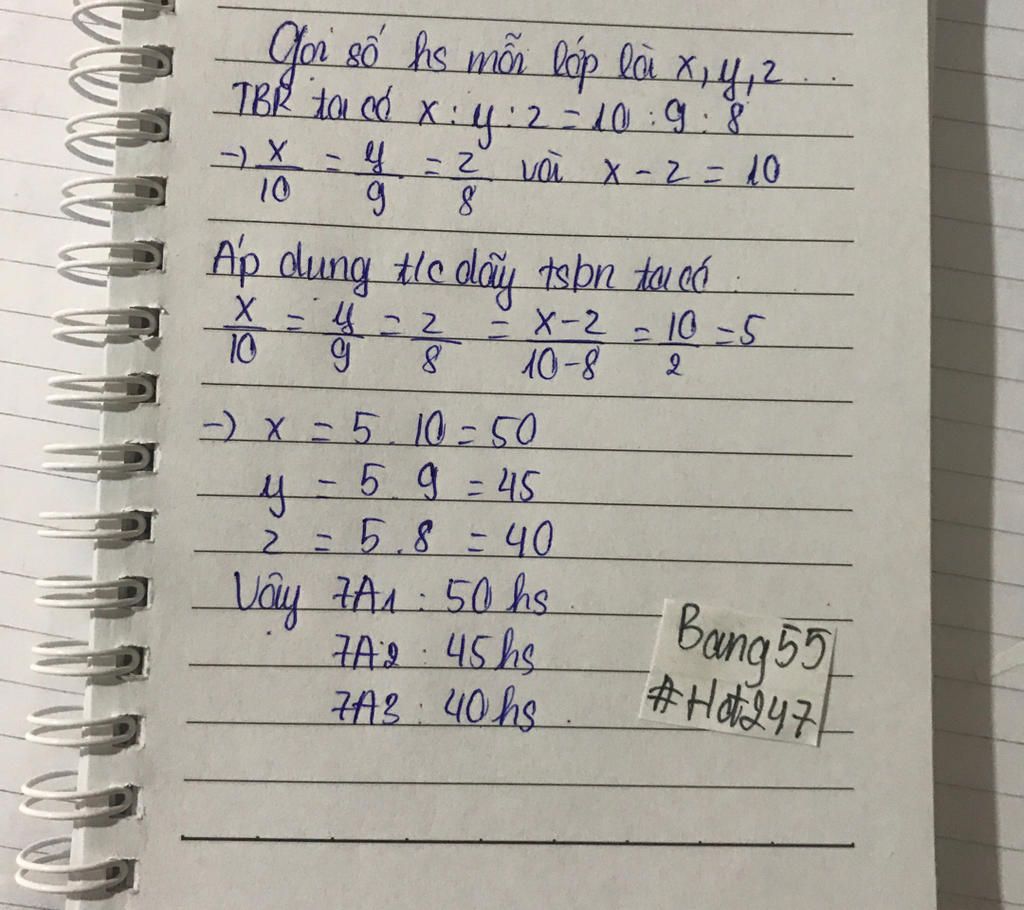 Gọi số hs mỗi lớp là x, y, z ...
TBR ta có x : y : z = 10 : 9 : 8
→ x/10 = y/9 = z/8 và x - z = 10
Áp dung t/c dãy tsbn ta có :
x/10 = y/9 = z/8 = x-z/10-8 = 10/2 = 5
→ x = 5 . 10 = 50
y = 5 . 9 = 45
z = 5 . 8 = 40
Vậy 7A1 : 50 hs
7A2 : 45 hs
7A3 : 40 hs .
Bang55
#Hdt247